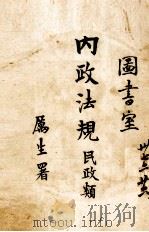 圖書室
內政法規 民政類
厲生署